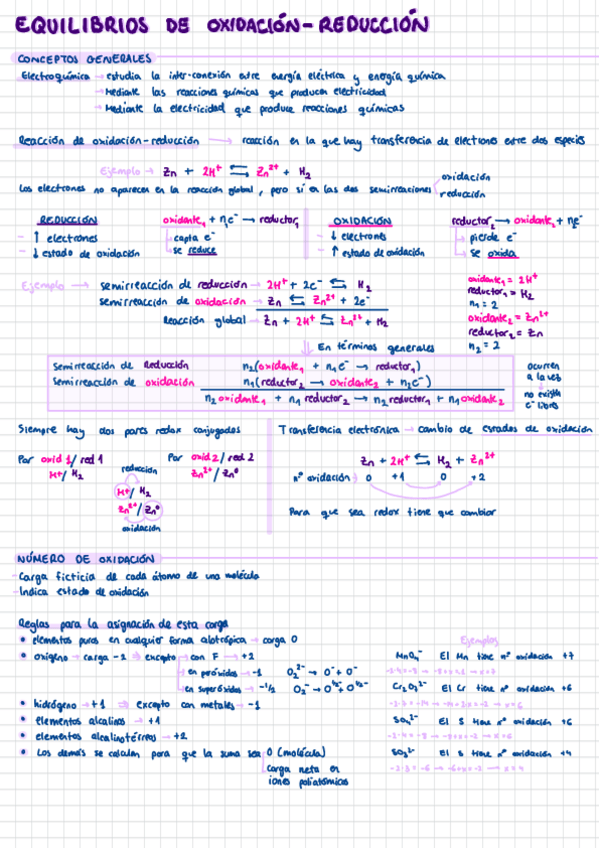 EQUILIBRIOS DE OXIDACIÓN-REDUCCIÓN
CONCEPTOS GENERALES
Electroquímica → estudia la inter-conexión entre energía eléctrica y energía química
→ Mediante las reacciones químicas que producen electricidad
→ Mediante la electricidad que produce reacciones químicas
Reacción de oxidación-reducción → reacción en la que hay transferencia de electrones entre dos especies
Ejemplo → Zn + 2H⁺ ⇆ Zn²⁺ + H₂
Los electrones no aparecen en la reacción global, pero sí en las dos semirreaciones
oxidación
reducción
REDUCCIÓN
oxidante₁ + n₁e⁻ → reductor₁
- ↑ electrones
- ↓ estado de oxidación
capta e⁻
se reduce
OXIDACIÓN
reductor₂ → oxidante₂ + ne⁻
- ↓ electrones
- ↑ estado de oxidación
pierde e⁻
se oxida
Ejemplo → semirreacción de reducción → 2H⁺ + 2e⁻ ⇆ H₂
semirreacción de oxidación → Zn ⇆ Zn²⁺ + 2e⁻
Reacción global → Zn + 2H⁺ ⇆ Zn²⁺ + H₂
oxidante₁ = 2H⁺
reductor₁ = H₂
n₁ = 2
oxidante₂ = Zn²⁺
reductor₂ = Zn
n₂ = 2
En términos generales
Semirreacción de Reducción n₂(oxidante₁ + n₁e⁻ → reductor₁)
Semirreacción de oxidación n₁(reductor₂ → oxidante₂ + n₂e⁻)
n₂ oxidante₁ + n₁ reductor₂ → n₂ reductor₁ + n₁ oxidante₂
ocurren
a la vez
no existen
e⁻ libres
Siempre hay dos pares redox conjugados
Par oxid 1/red 1
H⁺/H₂
Par oxid 2/red 2
Zn²⁺/Zn⁰
reducción
H⁺/H₂
Zn²⁺/Zn⁰
oxidación
Transferencia electrónica → cambio de estados de oxidación
Zn + 2H⁺ ⇆ H₂ + Zn²⁺
nº oxidación → 0 +1 0 +2
Para que sea redox tiene que cambiar
NÚMERO DE OXIDACIÓN
- Carga ficticia de cada átomo de una molécula
- Indica estado de oxidación
Reglas para la asignación de esta carga
• elementos puros en cualquier forma alotrópica → carga 0
• oxígeno → carga -2 ⇒ excepto → con F → +2
en peróxidos → -1 O₂²⁻ → O⁻ + O⁻
en superóxidos → -1/2 O₂⁻ → O^½⁻ + O^½⁻
• hidrógeno → +1 ⇒ excepto con metales → -1
• elementos alcalinos → +1
• elementos alcalinotérreos → +2
• Los demás se calculan para que la suma sea 0 (molécula)
Carga neta en
iones poliatómicos
Ejemplos
MnO₄⁻ El Mn tiene nº oxidación +7
-2·4 = -8 → -8+x = -1 → x = 7
Cr₂O₇²⁻ El Cr tiene nº oxidación +6
-2·7 = -14 → -14+2x = -2 → x = 6
SO₄²⁻ El S tiene nº oxidación +6
-2·4 = -8 → -8+x = -2 → x = 6
SO₃²⁻ El S tiene nº oxidación +4
-2·3 = -6 → -6+x = -2 → x = 4